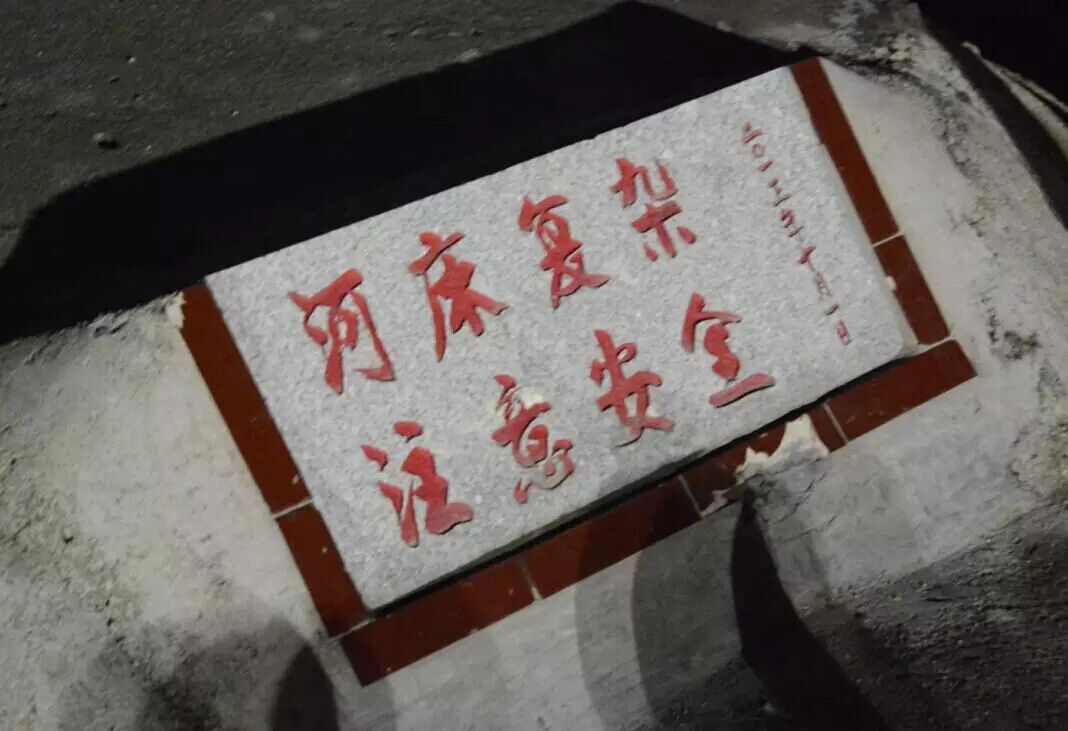 河床复杂
注意安全
二〇一三年十月一日